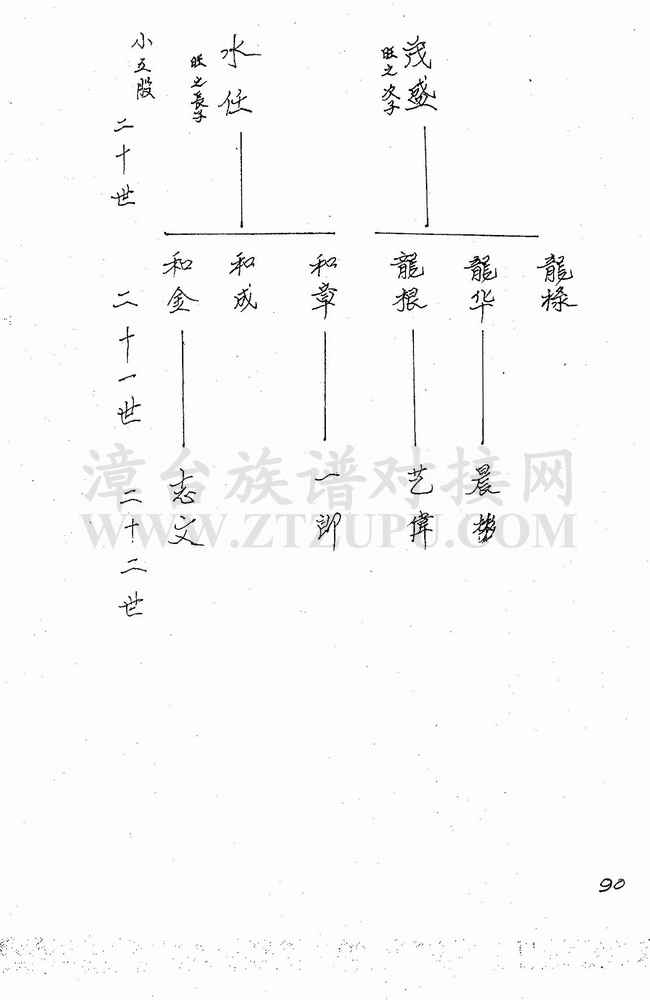 小五股
二十世
水任
旺之長子
茂盛
旺之次子
二十一世
和金
和成
和章
龍根
龍华
龍祿
二十二世
志文
一郎
艺偉
晨
漳台族谱对接网
WWW.ZTZUPU.COM
90